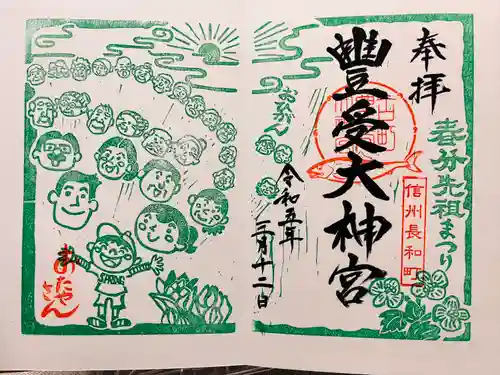 奉拝
春分先祖まつり
信州長和町
豊受大神宮
令和五年
三月十二日
おひがん
SPRING